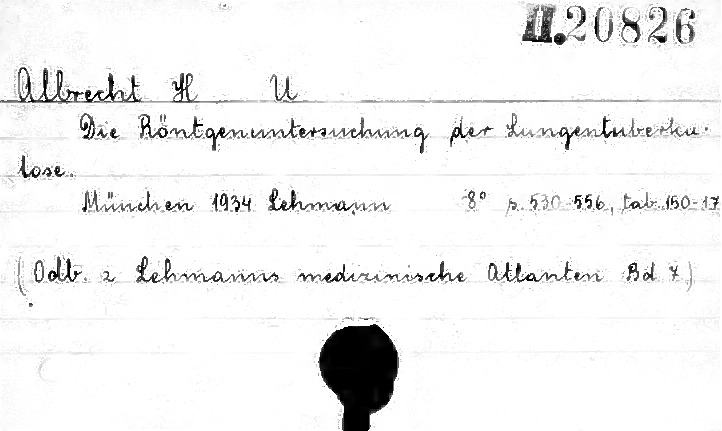 II.20826
Albrecht H U
Die Röntgenuntersuchung der Lungentuberku-
lose.
München 1934 Lehmann 8° p. 530-556, tab. 150-17
(Odb. z Lehmanns medizinische Atlanten Bd 7.)